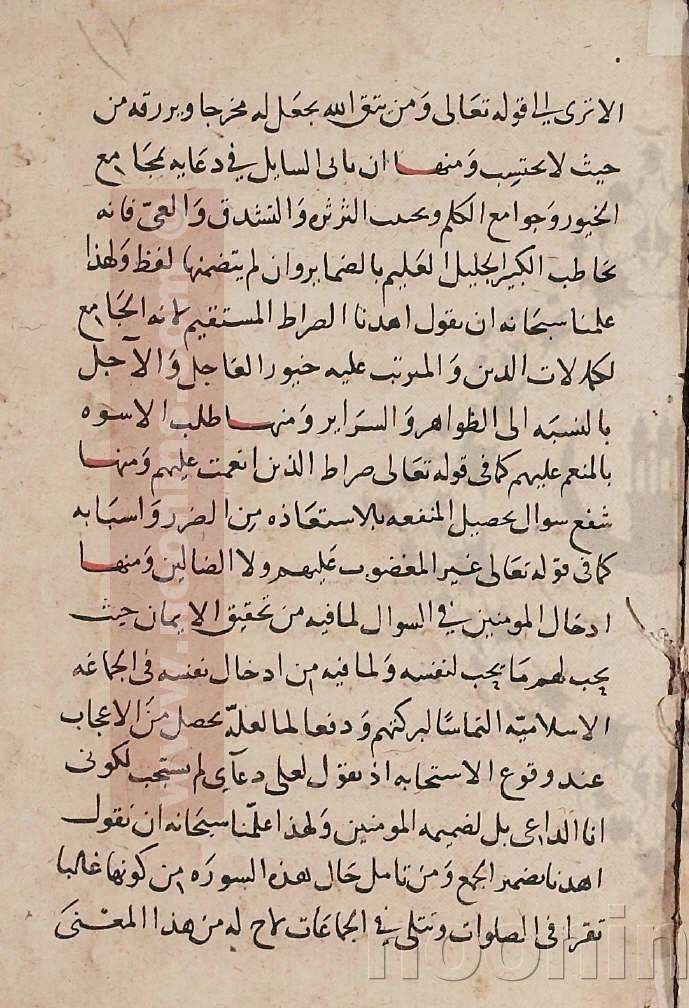 الا ترى الى قوله تعالى وَمن يتق الله يجعل له مخرجا ويرزقه من
حيث لا يحتسب وَمنها ان ياتى السايل في دعايه بمجَامع
الخيور وَجوامع الكلم ويجتنب الثرثره وَالتشدق وَالعىّ فانه
يخاطب الكبير الجليل العَليم بالضماير وان لم يتضمنها لفظ وَلهذا
علمنا سبحانه ان نقول اهدنا الصراط المستقيم لانه الجَامع
لكمالات الدين وَالمترتب عليه خيور العَاجل وَالآجل
بالنسبه الى الظواهر وَالسرَاير وَمنها طلب الاسوه
بالمنعم عليهم كما فى قوله تعَالى صراط الذين انعمت عليهم وَمنها
شفع سوال تحصيل المنفعه بالاستعَاذه مِن الضرر وَاسبَابه
كما فى قوله تعَالى غير المغضوب عَليهم ولا الضالين وَمنها
ادخال المومنين في السوال لما فيه من تحقيق الايمان حيث
يحب لهم مَا يحب لنفسه وَلما فيه من ادخال نفسه فى الجماعَه
الاسلاميّه التماسًا لبركتهم وَدفعا لما لعلّه يحصل مِنَ الاعجاب
عند وقوع الاستجابه اذ يقول لعلى دعآى لم يستجب لكونى
انا الداعى بل لضميمه المومنين وَلهذا علّمنا سبحَانه ان نقول
اهدنا بضمير الجمع وَمن تامل حَال هذه السورَه من كونها غالبا
تقرا فى الصلوات وتتلى في الجماعَات لاح له من هذا المعنى
www.
noorlib